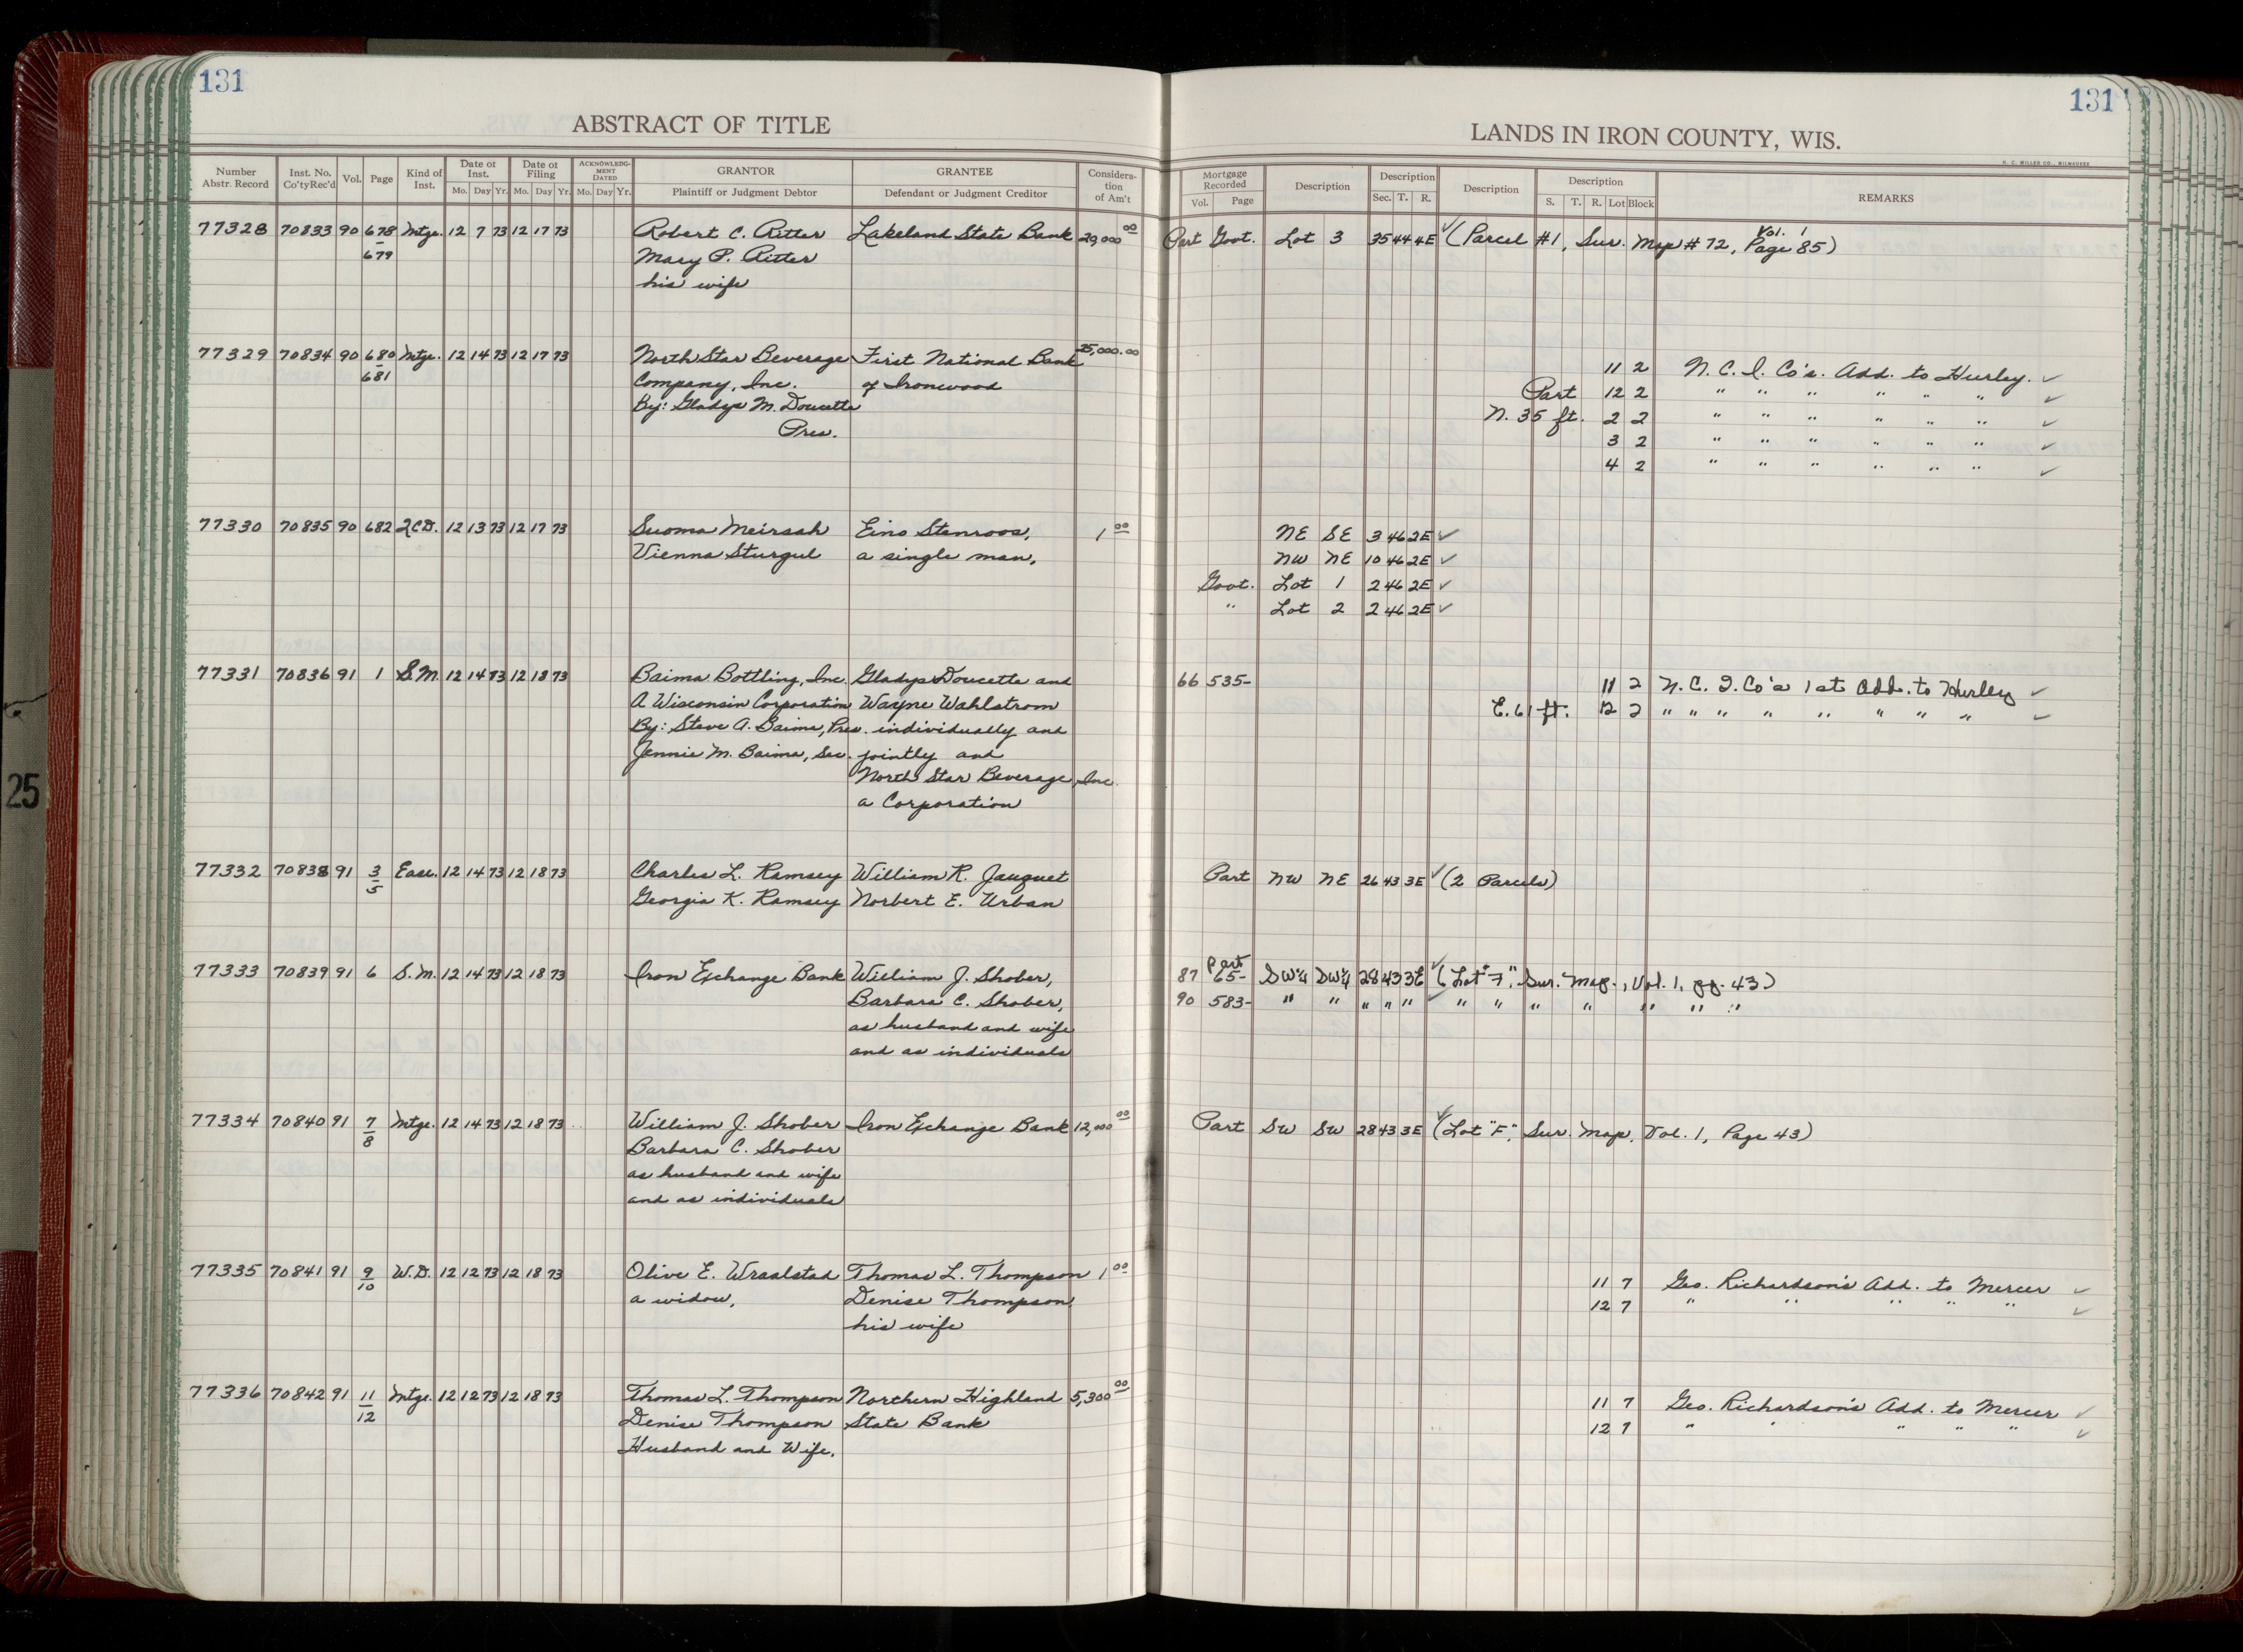 131
131
ABSTRACT OF TITLE
LANDS IN IRON COUNTY, WIS.
H. C. MILLER CO., MILWAUKEE
Number Abstr. Record | Inst. No. Co'tyRec'd | Vol. | Page | Kind of Inst. | Date of Inst. Mo. Day Yr. | Date of Filing Mo. Day Yr. | ACKNOWLEDGMENT DATED Mo. Day Yr. | GRANTOR Plaintiff or Judgment Debtor | GRANTEE Defendant or Judgment Creditor | Considera-tion of Am't | Mortgage Recorded Vol. Page | Description | Description Sec. T. R. | Description | Description S. T. R. Lot Block | REMARKS
77328 70833 90 678 Mtge. 12 7 73 12 17 73 Robert C. Ritter Lakeland State Bank 29,000 00 Part Govt. Lot 3 35 44 4E ✓ (Parcel #1, Sur. Map #72, Vol. 1 Page 85)
679 Mary P. Ritter
his wife
77329 70834 90 680 Mtge. 12 14 73 12 17 73 North Star Beverage First National Bank 25,000.00 11 2 N. C. I. Co's. Add. to Hurley. ✓
681 Company, Inc. of Ironwood Part 12 2 " " " " " " ✓
By: Gladys M. Doucette N. 35 ft. 2 2 " " " " " " ✓
Pres. 3 2 " " " " " " ✓
4 2 " " " " " " ✓
77330 70835 90 682 2CD. 12 13 73 12 17 73 Suoma Meirsah Eino Stenroos, 1 00 NE SE 3 46 2E ✓
Vienna Sturgul a single man. NW NE 10 46 2E ✓
Govt. Lot 1 2 46 2E ✓
" Lot 2 2 46 2E ✓
77331 70836 91 1 S.M. 12 14 73 12 18 73 Baima Bottling, Inc. Gladys Doucette and 66 535- 11 2 N. C. I. Co's 1st Add. to Hurley ✓
A Wisconsin Corporation Wayne Wahlstrom E. 61 ft. 12 2 " " " " " " " " ✓
By: Steve A. Baima, Pres. individually and
Jennie M. Baima, Sec. jointly and
North Star Beverage, Inc.
a Corporation
77332 70838 91 3 Ease. 12 14 73 12 18 73 Charles L. Ramsey William R. Jauquet Part NW NE 26 43 3E ✓ (2 Parcels)
5 Georgia K. Ramsey Norbert E. Urban
77333 70839 91 6 S.M. 12 14 73 12 18 73 Iron Exchange Bank William J. Shober, 87 65- Part SW¼ SW¼ 28 43 3E ✓ (Lot "F", Sur. Map., Vol. 1, pg. 43)
Barbara C. Shober, 90 583- " " " " " ✓ " " " " " " "
as husband and wife
and as individuals
77334 70840 91 7 Mtge. 12 14 73 12 18 73 William J. Shober Iron Exchange Bank 12,000 00 Part SW SW 28 43 3E ✓ (Lot "F", Sur. Map, Vol. 1, Page 43)
8 Barbara C. Shober
as husband and wife
and as individuals
77335 70841 91 9 W.D. 12 12 73 12 18 73 Olive E. Wraalstad Thomas L. Thompson 1 00 11 7 Geo. Richardson's Add. to Mercer ✓
10 a widow, Denise Thompson, 12 7 " " " " " ✓
his wife
77336 70842 91 11 Mtge. 12 12 73 12 18 73 Thomas L. Thompson Northern Highland 5,300 00 11 7 Geo. Richardson's Add. to Mercer ✓
12 Denise Thompson State Bank 12 7 " " " " " ✓
Husband and Wife.
25